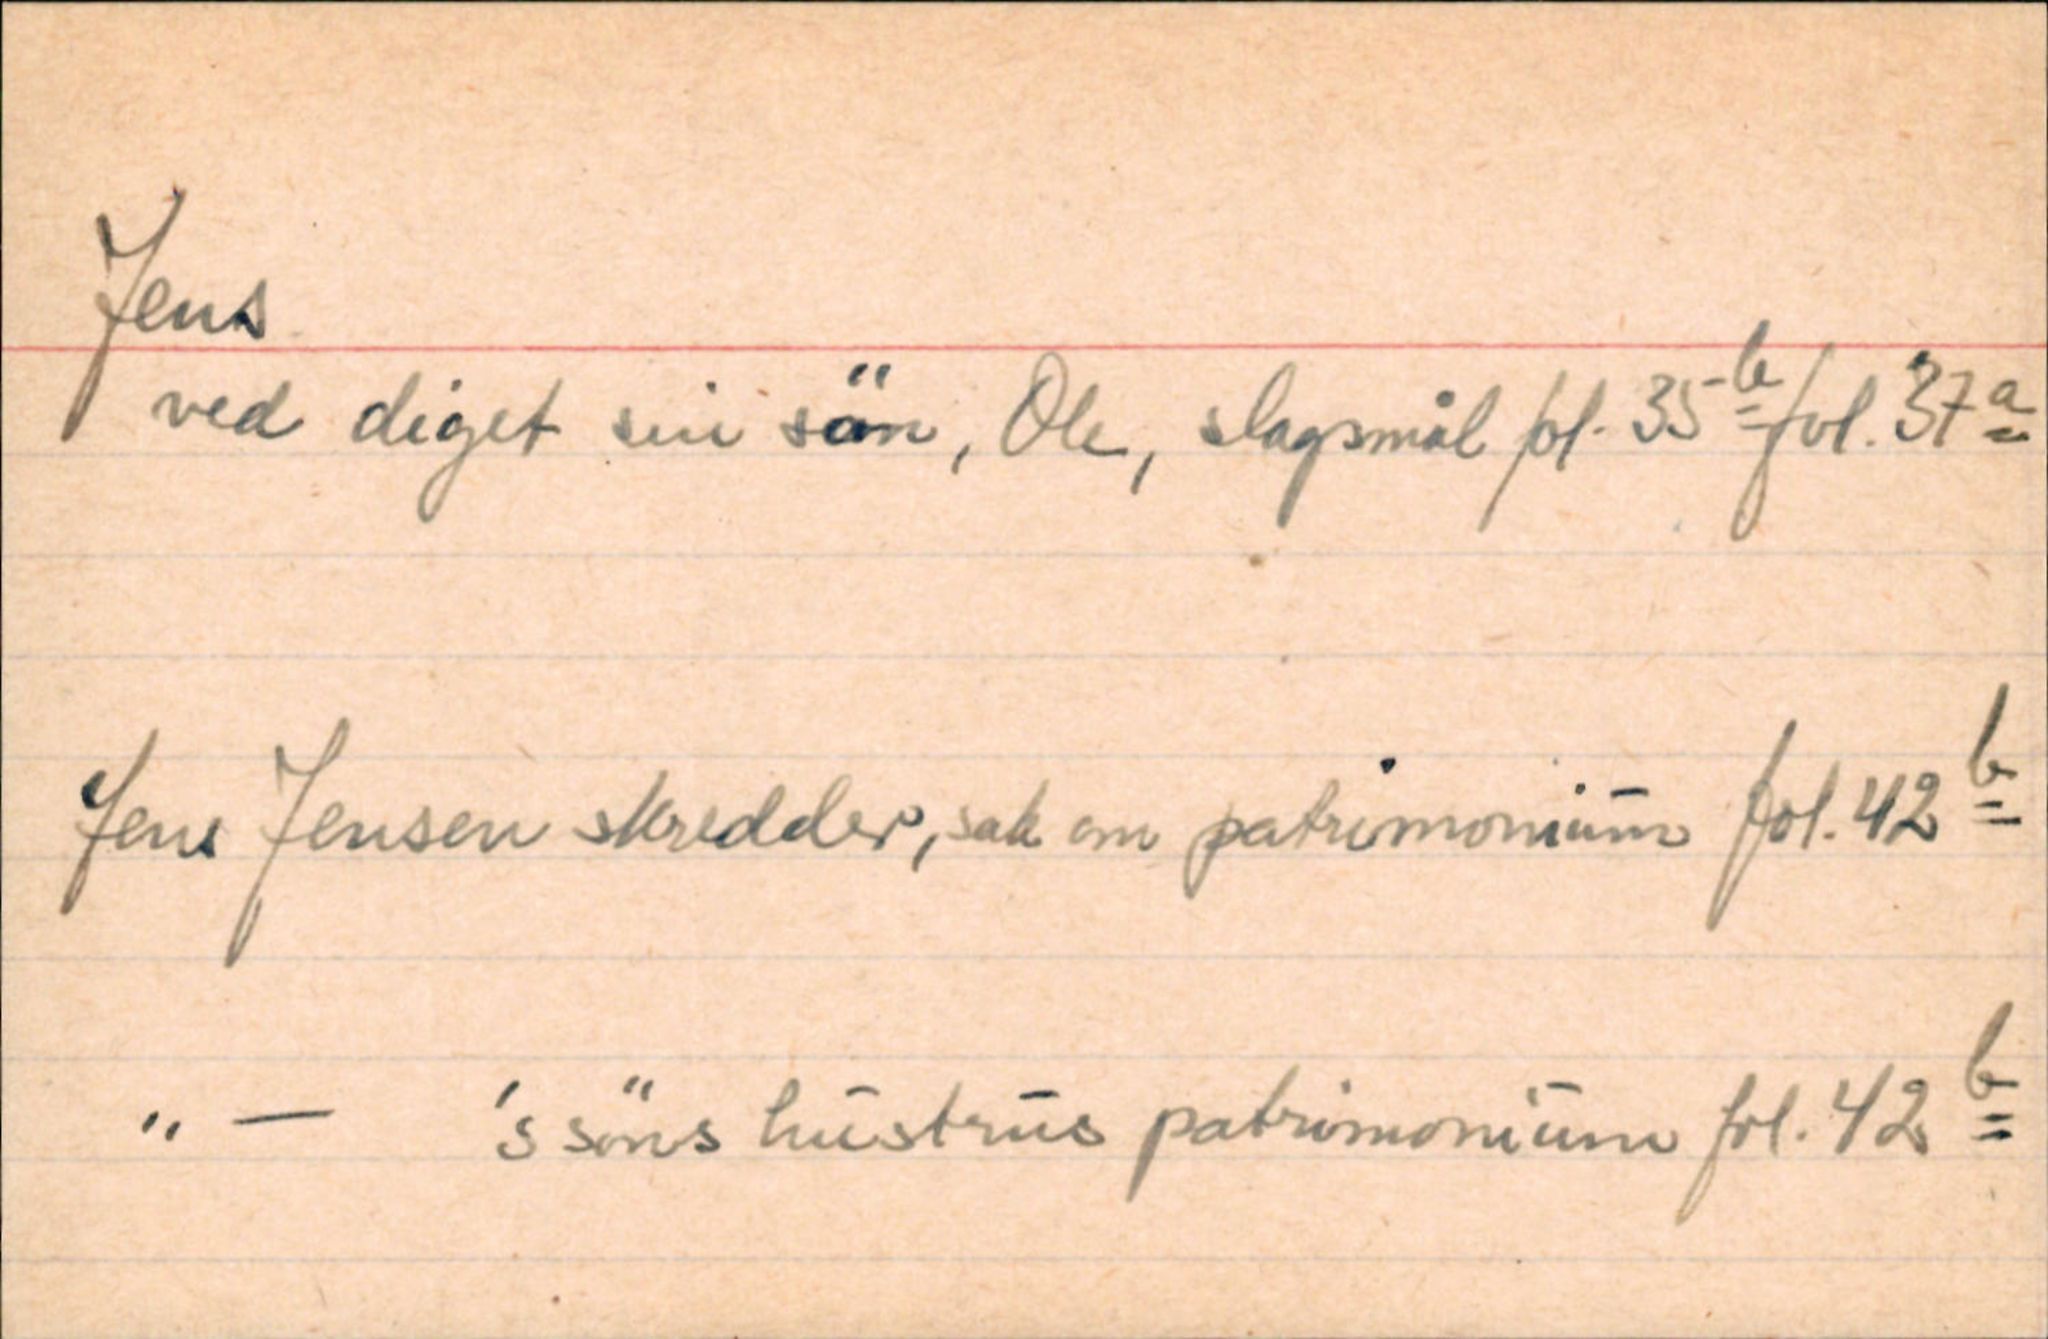 Jens
ved diget sin sön, Ole, slagsmål fol. 35b fol. 37a
Jens Jensen skredder, sak om patrimonium fol. 42b
" — 's söns hustrus patrimonium fol. 42b